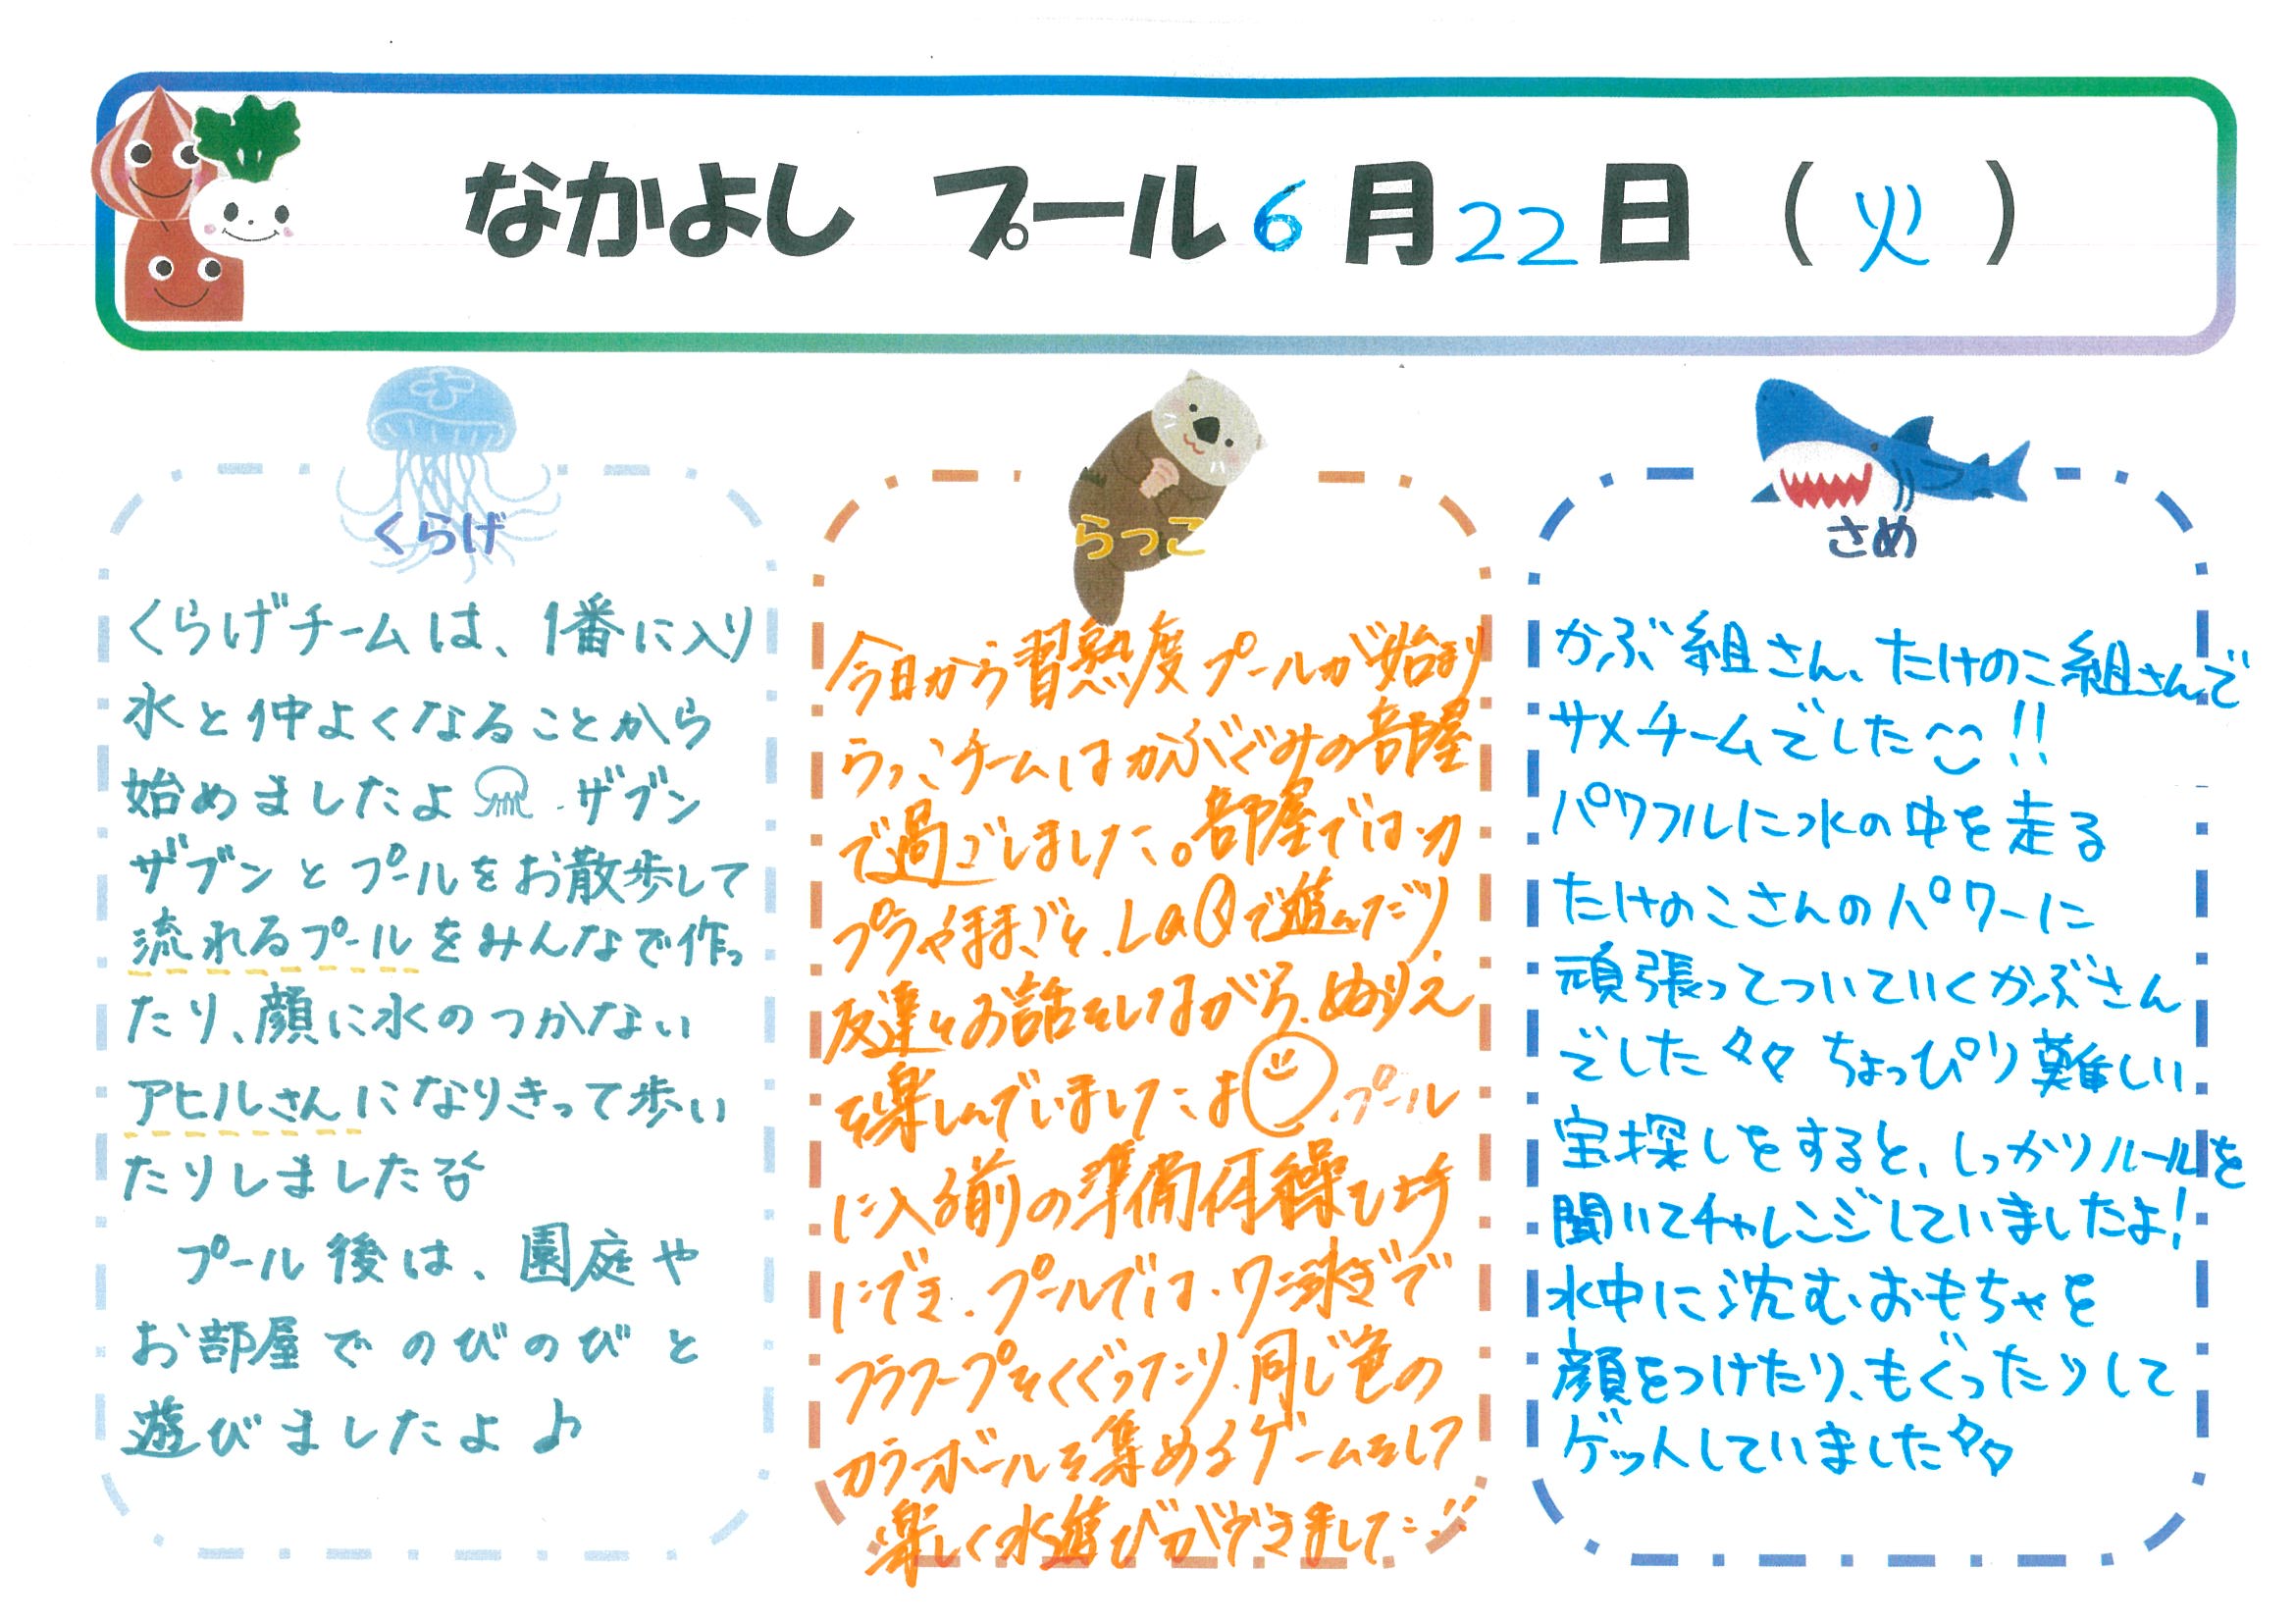 なかよし プール 6月22日（火）
くらげ
くらげチームは、1番に入り
水と仲よくなることから
始めましたよ ザブン
ザブンとプールをお散歩して
流れるプールをみんなで作っ
たり、顔に水のつかない
アヒルさんになりきって歩い
たりしました
プール後は、園庭や
お部屋でのびのびと
遊びましたよ♪
らっこ
今日から習熟度プールが始まり
らっこチームはかぶぐみの部屋
で過ごしました。部屋ではカ
プラやままごと、LaQで遊んだり、
友達とお話をしながら、ぬりえ
を楽しんでいましたよ プール
に入る前の準備体操も上手
にでき、プールでは、ワニ泳ぎで
フラフープをくぐったり、同じ色の
カラーボールを集めるゲームをして
楽しく水遊びができました
さめ
かぶ組さん、たけのこ組さんで
サメチームでした!!
パワフルに水の中を走る
たけのこさんのパワーに
頑張ってついていくかぶさん
でした ちょっぴり難しい
宝探しをすると、しっかりルールを
聞いてチャレンジしていましたよ!
水中に沈むおもちゃを
顔をつけたり、もぐったりして
ゲットしていました